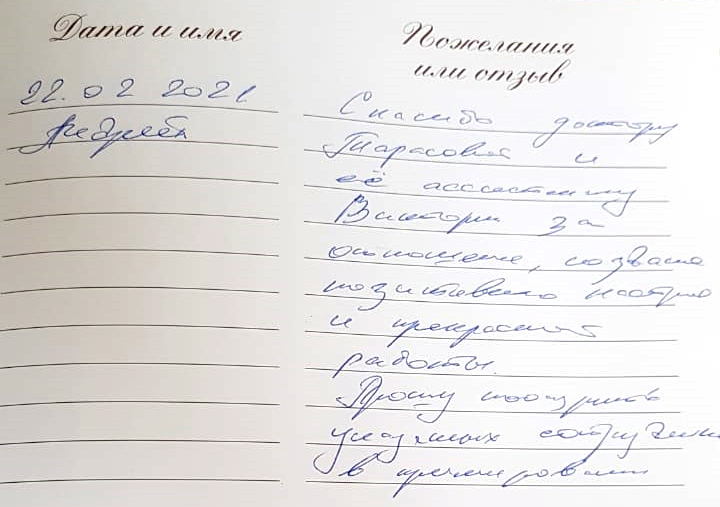 Дата и имя
22.02 2021
Пожелания
или отзыв
Спасибо доктору
Тарасовой и
её ассистенту
Виктории за
отношение,
позитивного настро
и прекрасной
работы.
Прошу поощрить
указанных сотрудник
в премировании